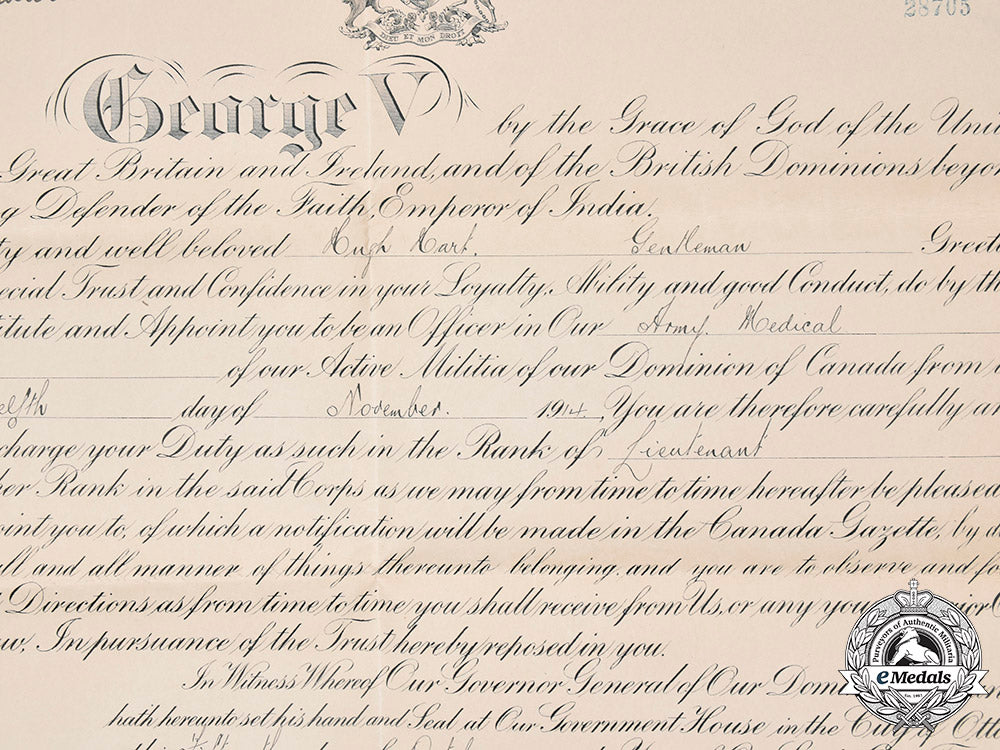 28705
DIEU ET MON DROIT
George V by the Grace of God of the Uni
Great Britain and Ireland, and of the British Dominions beyon
g Defender of the Faith, Emperor of India.
ty and well beloved Hugh Hart. Gentleman Greeti
ecial Trust and Confidence in your Loyalty, Ability and good Conduct, do by th
titute and Appoint you to be an Officer in Our Army Medical
of our Active Militia of our Dominion of Canada from
elfth day of November. 1914. You are therefore carefully an
charge your Duty as such in the Rank of Lieutenant
her Rank in the said Corps as we may from time to time hereafter be pleased
oint you to, of which a notification will be made in the Canada Gazette, by a
ll and all manner of things thereunto belonging, and you are to observe and fo
Directions as from time to time you shall receive from Us, or any you rior
aw, In pursuance of the Trust hereby reposed in you.
In Witness Whereof Our Governor General of Our Dom
hath hereunto set his hand and Seal at Our Government House in the City of Otta
Purveyors of Authentic Militaria
eMedals